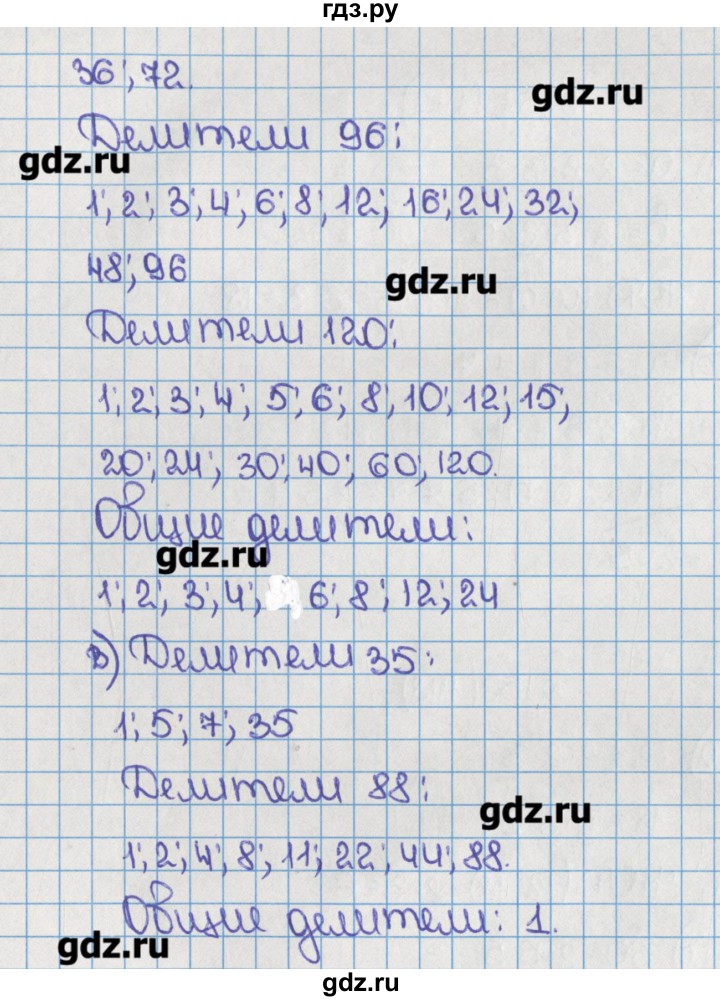 гдз.ру
36; 72.
gdz.ru
Делители 96:
gdz.ru
1; 2; 3; 4; 6; 8; 12; 16; 24; 32;
48; 96
gdz.ru
Делители 120:
1; 2; 3; 4; 5; 6; 8; 10; 12; 15;
20; 24; 30; 40; 60; 120.
Общие делители:
gdz.ru
1; 2; 3; 4; 6; 8; 12; 24
в) Делители 35:
1; 5; 7; 35
Делители 88:
gdz.ru
1; 2; 4; 8; 11; 22; 44; 88.
Общие делители: 1.
gdz.ru
gdz.ru